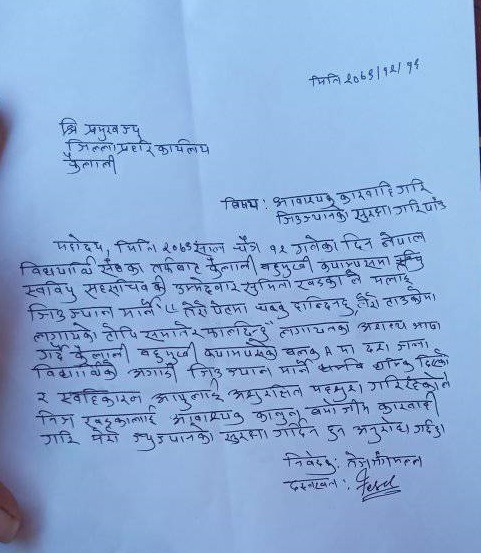 मिति २०७९/१२/१६
श्रि प्रमुखज्यू
जिल्ला प्रहरि कार्यलय
कैलाली
विषय: आवश्यक कारवाहि गरि
जिउज्यानको सुरक्षा गरिपाँउ
महोदय, मिति २०७९ साल चैत्र १२ गतेका दिन नेपाल
विद्यार्थि संघका तर्फबाट कैलाली बहुमुखी क्याम्पसमा
स्ववियु सहसचिवकी उम्मेदवार सुमित्रा खड्का ले मलाई
जिउज्यान मार्ने "तेरो पेटमा चक्कु हान्दिन्छु, तेरो टाउकोमा
लगायेको टोपि समातेर फालदिन्छु" लगायतका असभ्य भाषा
गर्दै कैलाली बहुमुखी क्याम्पसको ब्लक A मा दश जना
विद्यार्थिको अगाडी जिउज्यान मार्ने धम्कि दिएको
र आफुलाई असुरक्षित महसुस गरिरहेकाले
निज खड्कालाई आवश्यक कानुन बमोजीम कारवाही
गरि मेरो ज्युज्यानको सुरक्षा गर्दिन हुन अनुरोध गर्दछु।
निवेदक:
दस्तखत: